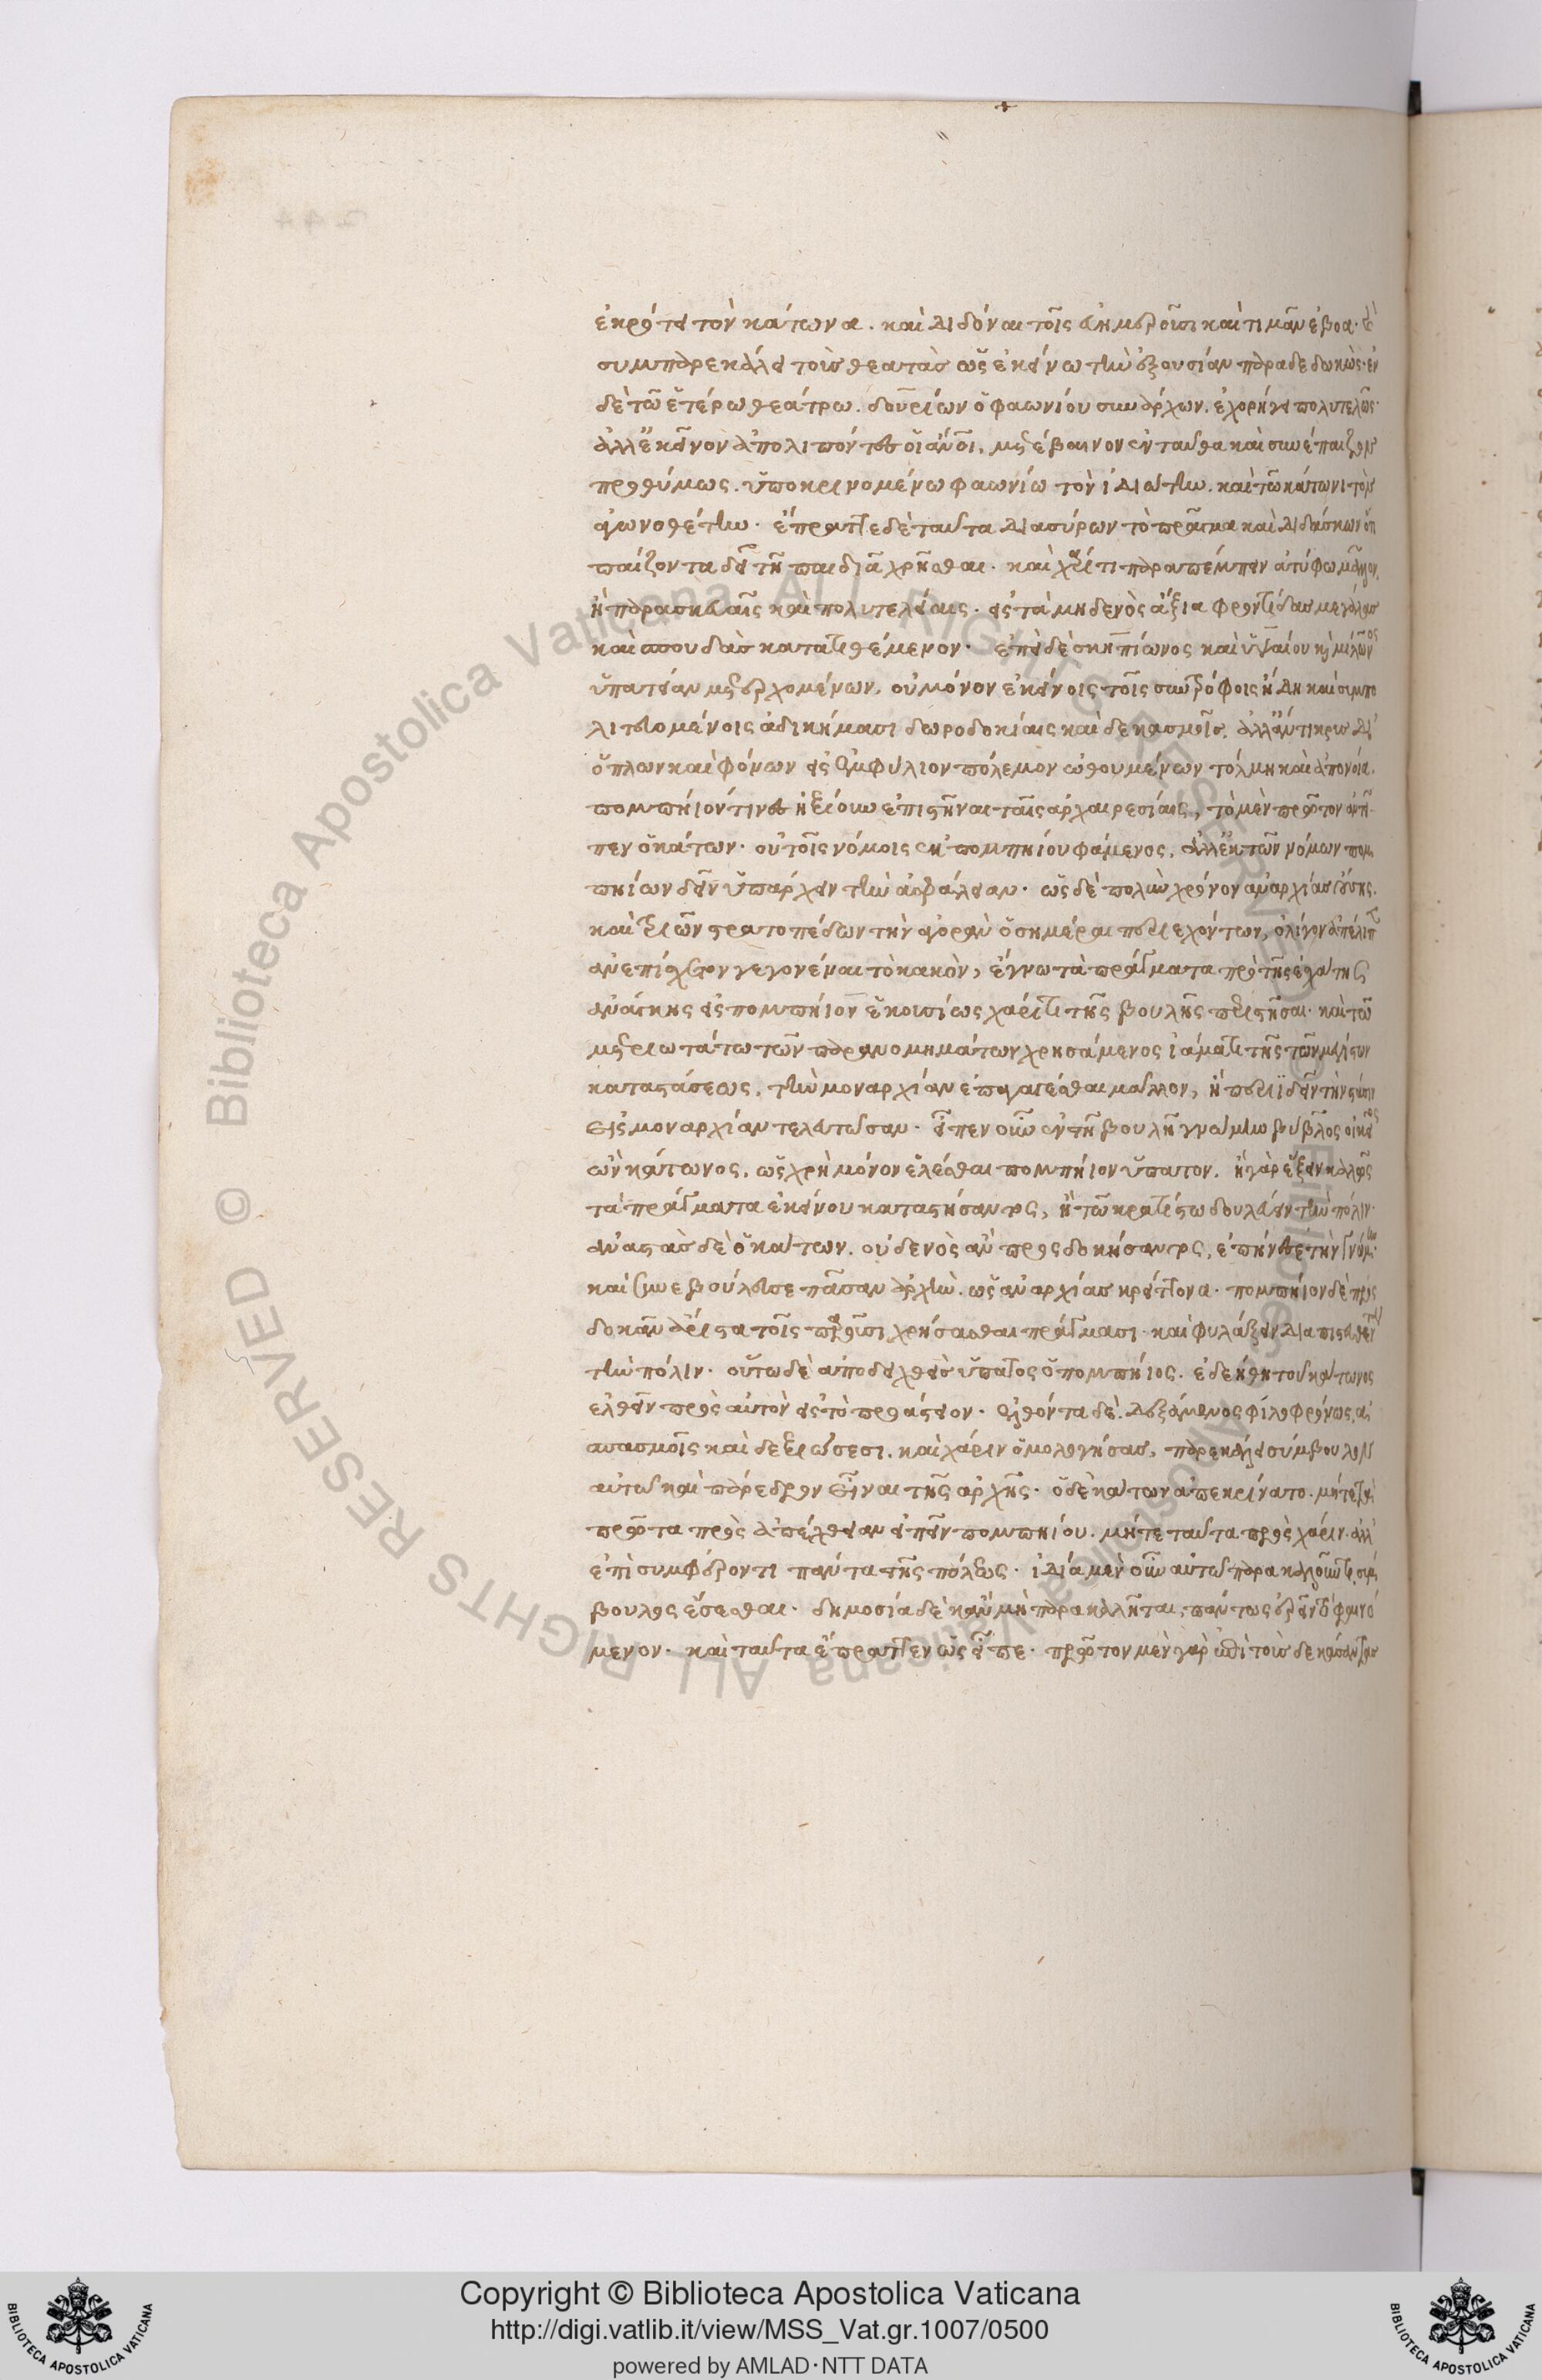 ἐκρότει τὸν κάτωνα. καὶ διδόναι τοῖς εὐημεροῦσι καὶ τιμᾶν ἐβόα. καὶ
συμπαρεκάλει τοὺς θεατὰς ὡς ἐκείνω τὴν ἐξουσίαν παραδεδωκώς. ἐν
δὲ τῶ ἑτέρω θεάτρω. κουρίων ὁ φαωνίου συνάρχων. ἐχορήγει πολυτελῶς.
ἀλλ' ἐκεῖνον ἀπολιπόντες οἱ ἄνοι. μετέβαινον ἐνταῦθα καὶ συνέπαιζον
προθύμως. ὑποκρινομένω φαωνίω τὸν ἰδιώτην. καὶ τῶ κάτωνι τὸν
ἀγωνοθέτην. ἔπραττε δὲ ταῦτα διασύρων τὸ πρᾶγμα καὶ διδάσκων ὅτι
παίζοντα δεῖ τῆ παιδιᾶ χρῆσθαι. καὶ χάριτι παραπέμπειν ἀτύφω μᾶλλον,
ἢ παρασκευαῖς καὶ πολυτελείαις. εἰς τὰ μηδενὸς ἄξια φροντίδας μεγάλας
καὶ σπουδὰς κατατιθέμενον. ἐπεὶ δὲ σκηπίωνος καὶ ὑψαίου καὶ μίλωνος
ὑπατείαν μετερχομένων. οὐ μόνον ἐκείνοις τοῖς συντρόφοις ἤδη καὶ συμπο
λιτευομένοις ἀδικήμασι δωροδοκίαις καὶ δεκασμοῖς. ἀλλ' ἄντικρυς δι'
ὅπλων καὶ φόνων εἰς ἐμφύλιον πόλεμον ὠθουμένων τόλμη καὶ ἀπονοία.
πομπήιόν τινες ἠξίουν ἐπιστῆναι ταῖς ἀρχαιρεσίαις, τὸ μὲν πρῶτον ἀντεῖ
πεν ὁ κάτων. οὐ τοῖς νόμοις ἐκ πομπηίου φάμενος. ἀλλ' ἐκ τῶν νόμων πομ
πηίων δεῖν ὑπάρχειν τὴν ἀσφάλειαν. ὡς δὲ πολὺν χρόνον ἀναρχίας οὔσης.
καὶ τριῶν στρατοπέδων τὴν ἀγορὰν ὁσημέραι περιεχόντων, ὀλίγον ἀπέλιπεν
ἀνεπίσχετον γεγονέναι τὸ κακὸν, ἔγνω τὰ πράγματα πρὸ τῆς ἐσχάτης
ἀνάγκης εἰς πομπήιον ἑκουσίως χάριτι τῆς βουλῆς περιστῆσαι. καὶ τῶ
μετριωτάτω τῶν παρανομημάτων χρησάμενος ἰάματι τῆς τῶν μεγίστων
καταστάσεως. τὴν μοναρχίαν ἐπαγαγέσθαι μᾶλλον, ἢ περιϊδεῖν τὴν στάσιν
εἰς μοναρχίαν τελευτῶσαν. εἶπεν οὖν ἐν τῆ βουλῆ γνώμην βύβλος οἰκεῖος
ὢν κάτωνος. ὡς χρὴ μόνον ἑλέσθαι πομπήιον ὕπατον. ἢ γὰρ ἕξειν καλῶς
τὰ πράγματα ἐκείνου καταστήσαντος, ἢ τῶ κρατίστω δουλεύειν τὴν πόλιν.
ἀναστὰς δὲ ὁ κάτων. οὐδενὸς ἂν προσδοκήσαντος, ἐπήνεσε τὴν γνώμην.
καὶ συνεβούλευσε πᾶσαν ἀρχὴν. ὡς ἀναρχίας κρείττονα. πομπήιον δὲ προσ
δοκᾶν ἄριστα τοῖς παροῦσι χρήσασθαι πράγμασι. καὶ φυλάξειν διαπιστευθέντα
τὴν πόλιν. οὕτω δὲ ἀποδειχθεὶς ὕπατος ὁ πομπήιος. ἐδεήθη τοῦ κάτωνος
ἐλθεῖν πρὸς αὐτὸν εἰς τὸ προάστειον. ἐλθόντα δὲ. δεξάμενος φιλοφρόνως,
ἀσπασμοῖς καὶ δεξιώσεσι. καὶ χάριν ὁμολογήσας, παρεκάλει σύμβουλον
αὐτῶ καὶ πάρεδρον εἶναι τῆς ἀρχῆς. ὁ δὲ κάτων ἀπεκρίνατο. μήτε τὰ
πρῶτα πρὸς ἀπέχθειαν εἰπεῖν πομπηίου. μήτε ταῦτα πρὸς χάριν. ἀλλ'
ἐπὶ συμφέροντι πάντα τῆς πόλεως. ἰδία μὲν οὖν αὐτῶ παρακαλοῦντι, σύμ
βουλος ἔσεσθαι. δημοσία δὲ κἂν μὴ παρακαλῆται, πάντως ἐρεῖν τὸ φαινό
μενον. καὶ ταῦτα ἔπραττεν ὡς εἶπε. πρῶτον μὲν γὰρ ἐπὶ τοὺς δεκάσαντας
Copyright © Biblioteca Apostolica Vaticana
http://digi.vatlib.it/view/MSS_Vat.gr.1007/0500
powered by AMLAD·NTT DATA